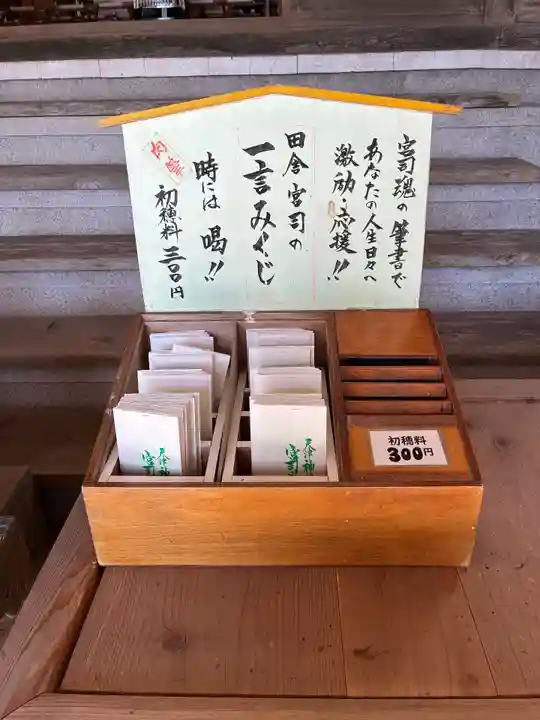 宮司魂の筆書で
あなたの人生日々へ
激励・応援!!
田舎宮司の
一言みくじ
時には喝!!
初穂料三百円
肉筆
初穂料
300円
宮司
宮司